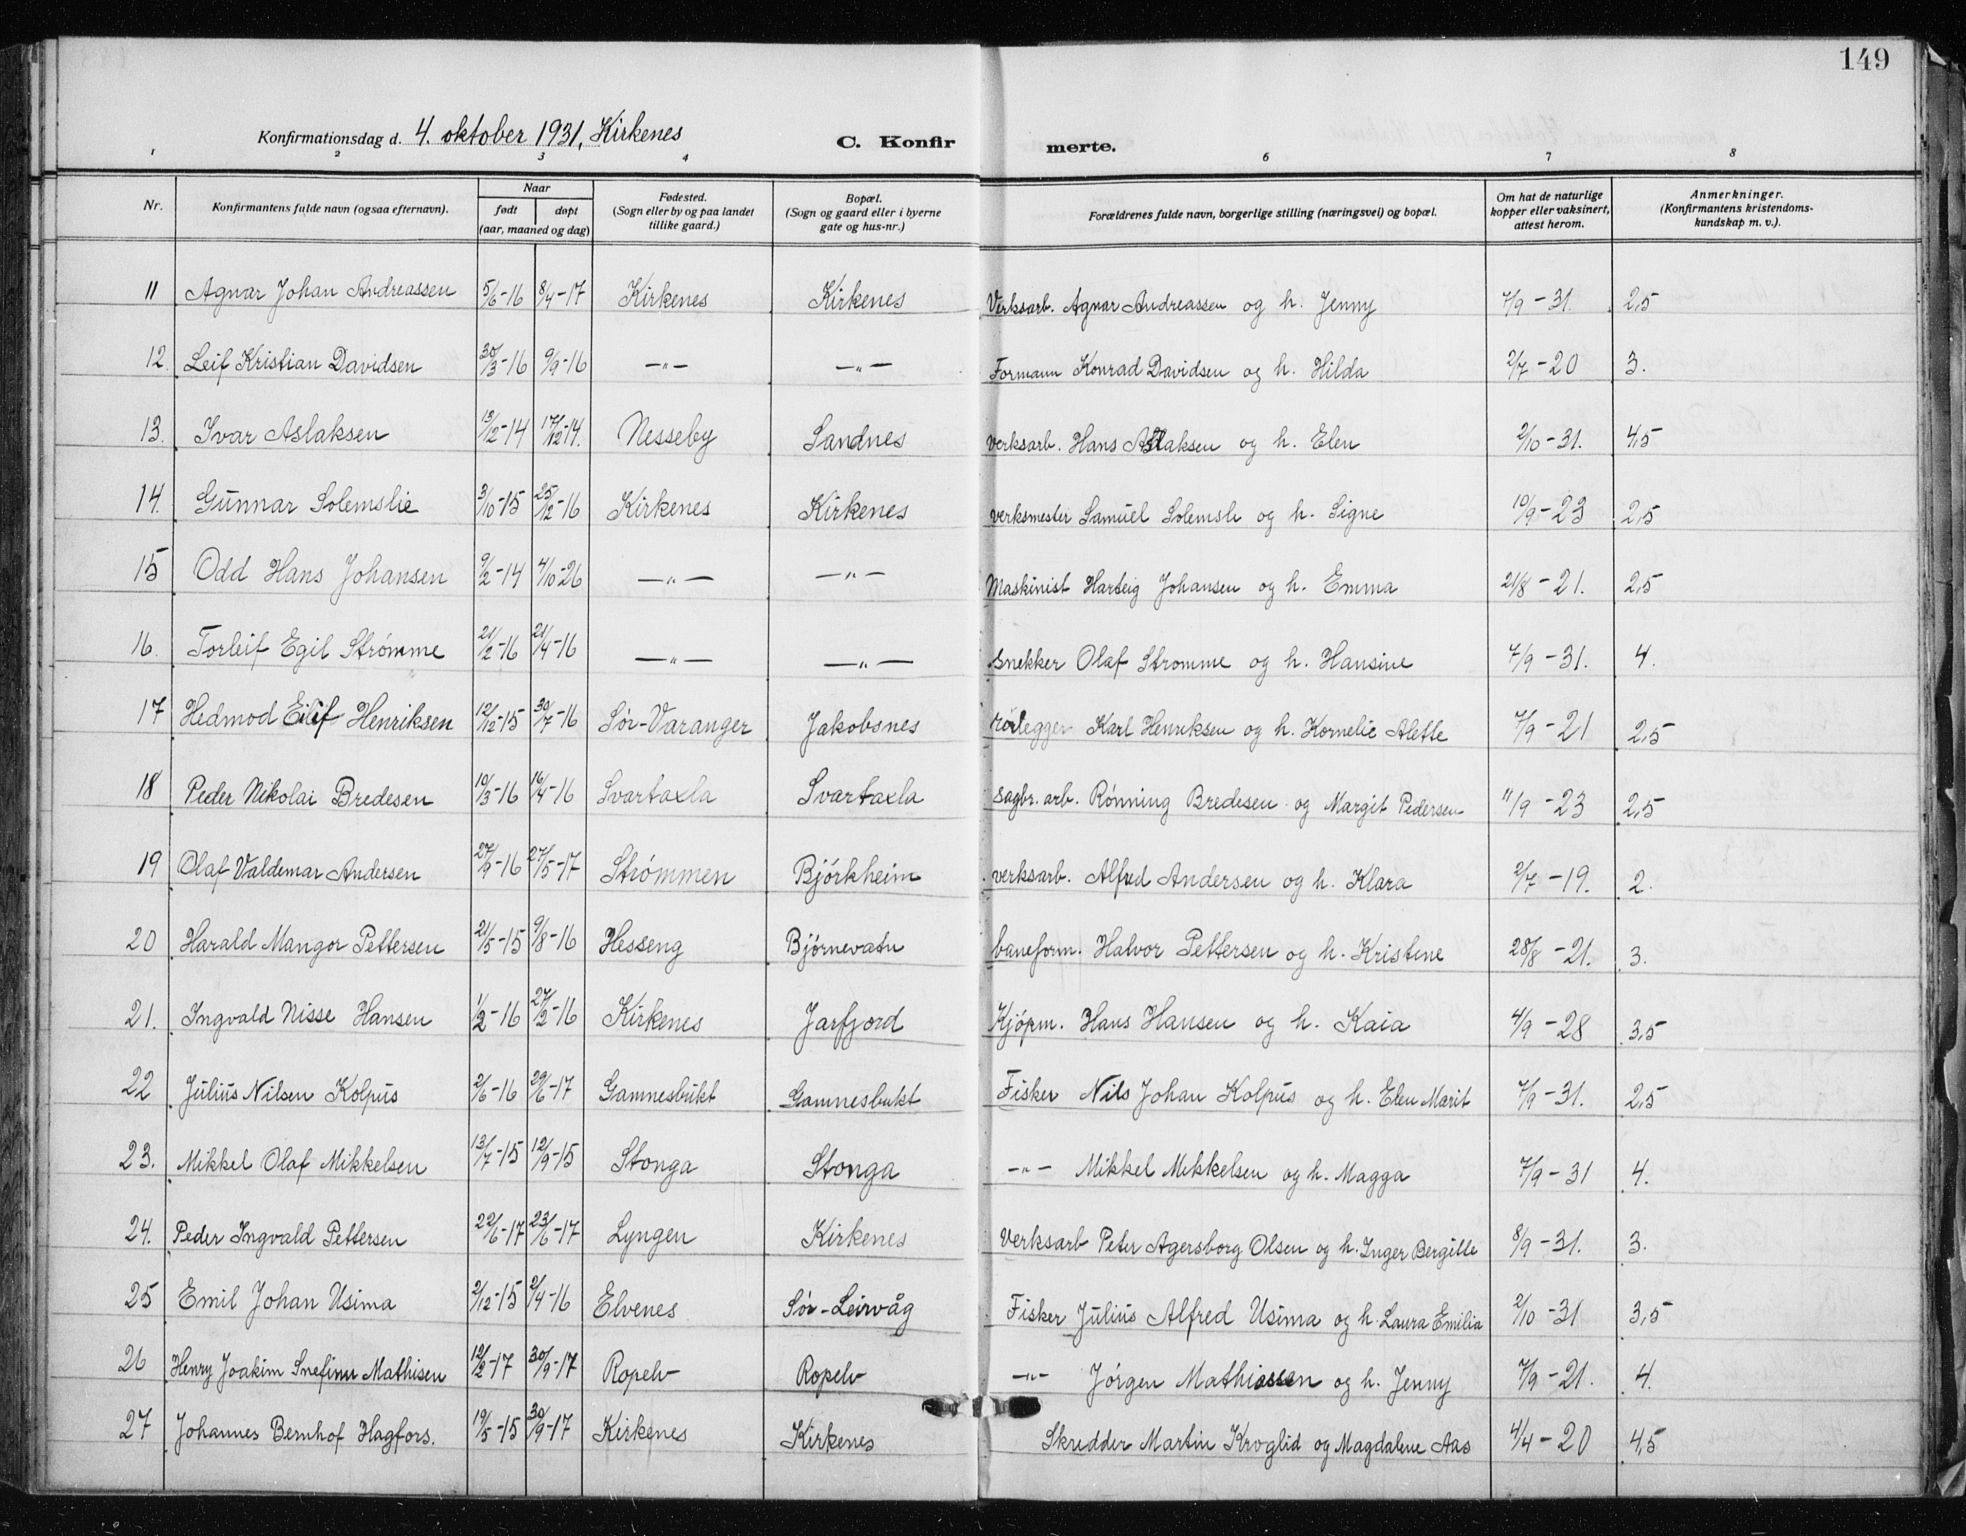 149
Konfirmationsdag d. 4. oktober 1931, Kirkenes C. Konfirmerte.
1 2 3 4 6 7 8
Nr. Konfirmantens fulde navn (ogsaa efternavn). Naar født døpt (aar, maaned og dag) Fødested. (Sogn eller by og paa landet tillike gaard.) Bopæl. (Sogn og gaard eller i byerne gate og hus-nr.) Forældrenes fulde navn, borgerlige stilling (næringsvei) og bopæl. Om hat de naturlige kopper eller vaksinert, attest herom. Anmerkninger. (Konfirmantens kristendomskundskap m. v.).
11 Agnar Johan Andreassen 5/6-16 8/4-17 Kirkenes Kirkenes Verksarb. Agnar Andreassen og h. Jenny 7/9-31. 2,5
12. Leif Kristian Davidsen 30/3-16 9/9-16 —„— —„— Formann Konrad Davidsen og h. Hilda 2/7-20 3.
13. Ivar Aslaksen 13/12-14 17/12-14. Nesseby Sandnes verksarb. Hans Aslaksen og h. Elen 2/10-31. 4,5
14. Gunnar Solemslie 3/10-15 25/12-16 Kirkenes Kirkenes verksmester Samuel Solemsli og h. Signe 10/9-23 2,5
15 Odd Hans Johansen 9/2-14 4/10-26 —„— —„— Maskinist Hartvig Johansen og h. Emma 21/8-21. 2,5
16. Torleif Egil Strømme 21/2-16 21/4-16 —„— —„— snekker Olaf Stromme og h. Hansine 7/9-31. 4.
17 Hedmod Eilif Henriksen 12/12-15 30/7-16 Sør-Varanger Jakobsnes rørlegger Karl Henriksen og h. Kornelie Alette 7/9-21 2,5
18 Peder Nikolai Bredesen 10/3-16 16/4-16 Svartaxla Svartaxla sagbr. arb. Rønning Bredesen og Margit Pedersen 11/9-23 2,5
19 Olaf Valdemar Andersen 27/9-16 27/5-17 Strømmen Bjørkheim verksarb. Alfred Andersen og h. Klara 2/7-19. 2.
20 Harald Mangor Pettersen 21/5-15 9/8-16 Hesseng Bjørnevatn baneform. Halvor Pettersen og h. Kristine 28/8-21. 3.
21. Ingvald Nisse Hansen 1/2-16 27/2-16 Kirkenes Jarfjord Kjøpm. Hans Hansen og h. Kaia 4/9-28 3,5
22 Julius Nilsen Kolpus 2/6-16 29/6-17 Gamnesbukt Gamnesbukt Fisker Nils Johan Kolpus og h. Elen Marit 7/9-31. 2,5
23. Mikkel Olaf Mikkelsen 13/7-15 12/9-15 Stonga Stonga —„— Mikkel Mikkelsen og h. Magga 7/9-31 4.
24. Peder Ingvald Pettersen 22/6-17 23/6-17 Lyngen Kirkenes Verksarb Peter Agersborg Olsen og h. Inger Bergitte 8/9-31. 3.
25 Emil Johan Usima 2/12-15 2/4-16 Elvenes Sør-Leirvåg Fisker Julius Alfred Usima og h. Laura Emilia 2/10-31 3,5
26 Henry Joakim Snefinn Mathisen 12/2-17 30/9-17 Ropelv Ropelv —„— Jørgen Mathiassen og h. Jenny 7/9-21. 4.
27 Johannes Bernhof Hagfors. 19/5-15 30/9-17 Kirkenes Kirkenes Skredder Martin Kroglid og Magdalene Aas 4/4-20 4,5